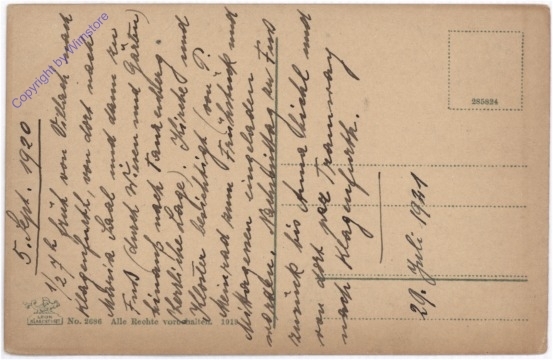 5. Sept. 1920
1/2 7h früh von Villach nach
Klagenfurt, von dort nach
Maria Saal und dann zu
Fuß (durch Wiesen und Gärten)
hinauf nach Tanzenberg.
Herrliche Lage). Kirche und
Kloster besichtigt (von P.
Meinrad zum Frühstück und
Mittagessen eingeladen
worden. Nachmittag zu Fuß
zurück bis Anna Bichl und
von dort per Tramway
nach Klagenfurt.
29. Juli 1921
285824
No. 2686 Alle Rechte vorbehalten. 1919
Copyright by Winstore